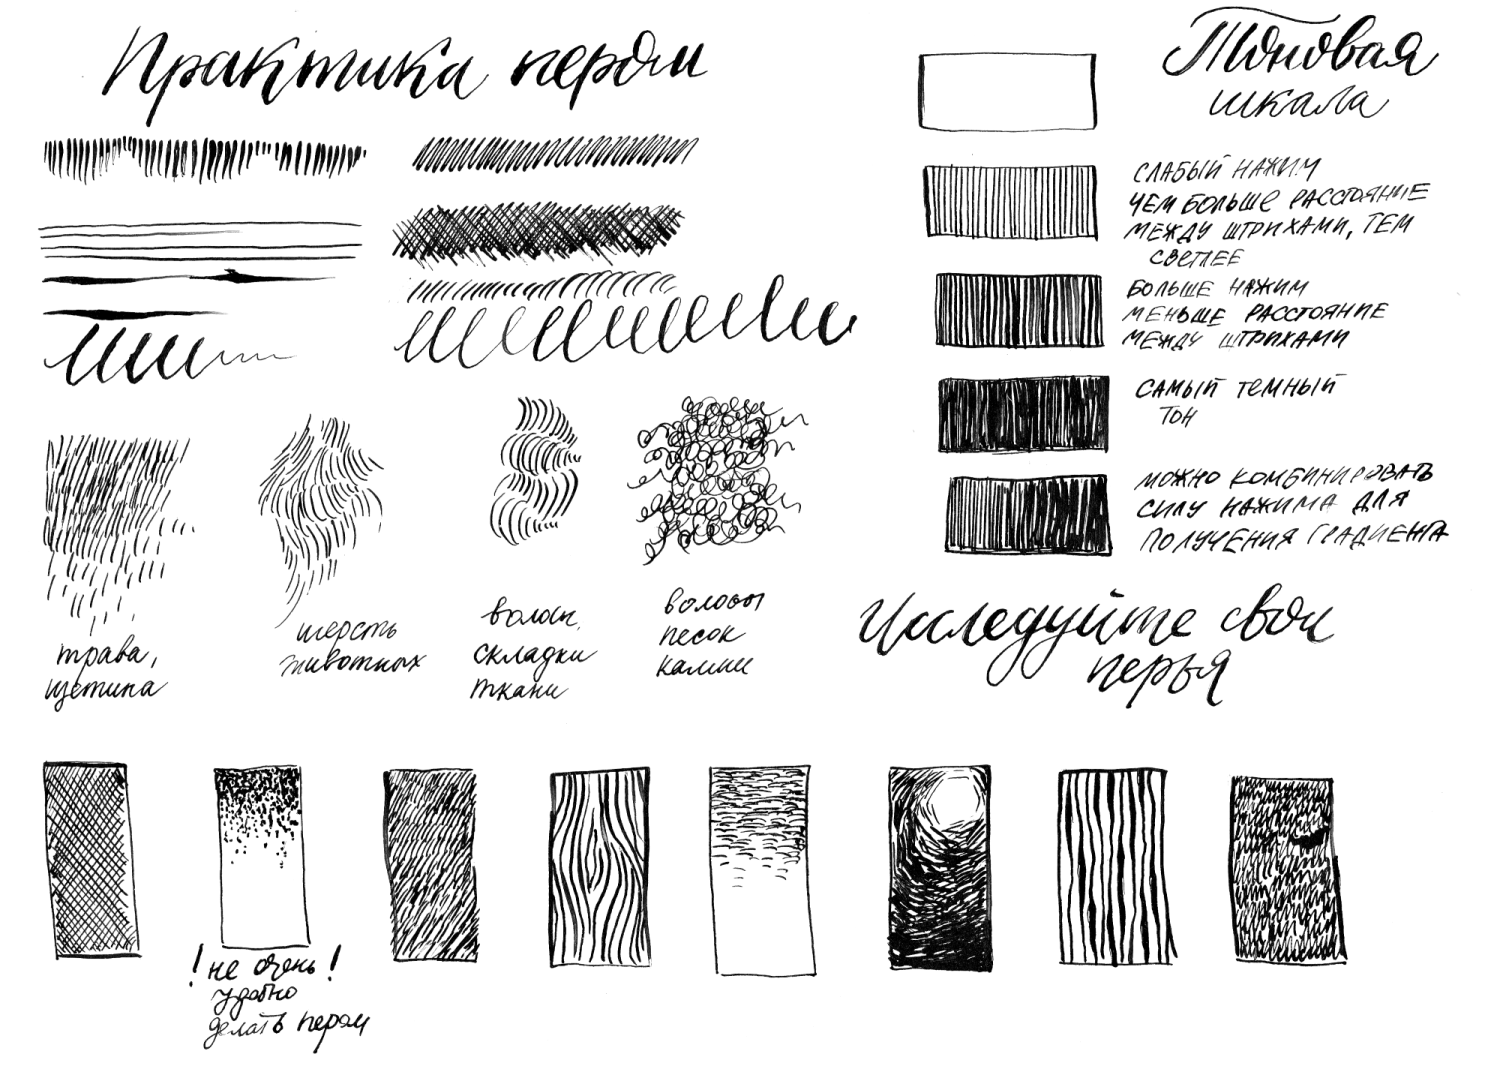 Практика пером
трава,
щетина
шерсть
животных
волосы,
складки
ткани
волосы
песок
камни
Тоновая
шкала
СЛАБЫЙ НАЖИМ
ЧЕМ БОЛЬШЕ РАССТОЯНИЕ
МЕЖДУ ШТРИХАМИ, ТЕМ
СВЕТЛЕЕ
БОЛЬШЕ НАЖИМ
МЕНЬШЕ РАССТОЯНИЕ
МЕЖДУ ШТРИХАМИ
САМЫЙ ТЕМНЫЙ
ТОН
МОЖНО КОМБИНИРОВАТЬ
СИЛУ НАЖИМА ДЛЯ
ПОЛУЧЕНИЯ ГРАДИЕНТА
Исследуйте свои
перья
! не очень !
удобно
делать пером